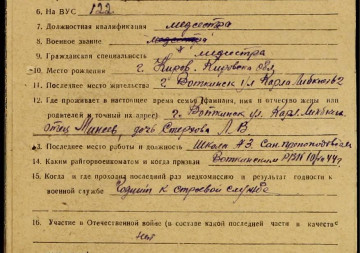 6. На ВУС 122
7. Должностная квалификация медсестра
8. Военное звание медсестра
9. Гражданская специальность медсестра
10. Место рождения г. Киров, Кировск обл
11. Последнее место жительства г. Воткинск ул Карла Либкнехт 2
12. Где проживает в настоящее время семья (фамилия, имя и отчество жены или
родителей и точный их адрес) г. Воткинск ул Карл Либкнехт
отец дочь Л. В
13. Последнее место работы и должность Школа #3. Сан.
14. Каким райгорвоенкоматом и когда призван Воткинским РВК
15. Когда и где проходил последний раз медкомиссию и результат годности к
военной службе Годный к строевой службе
16. Участие в Отечественной войне (в составе какой последней части в качестве
нет